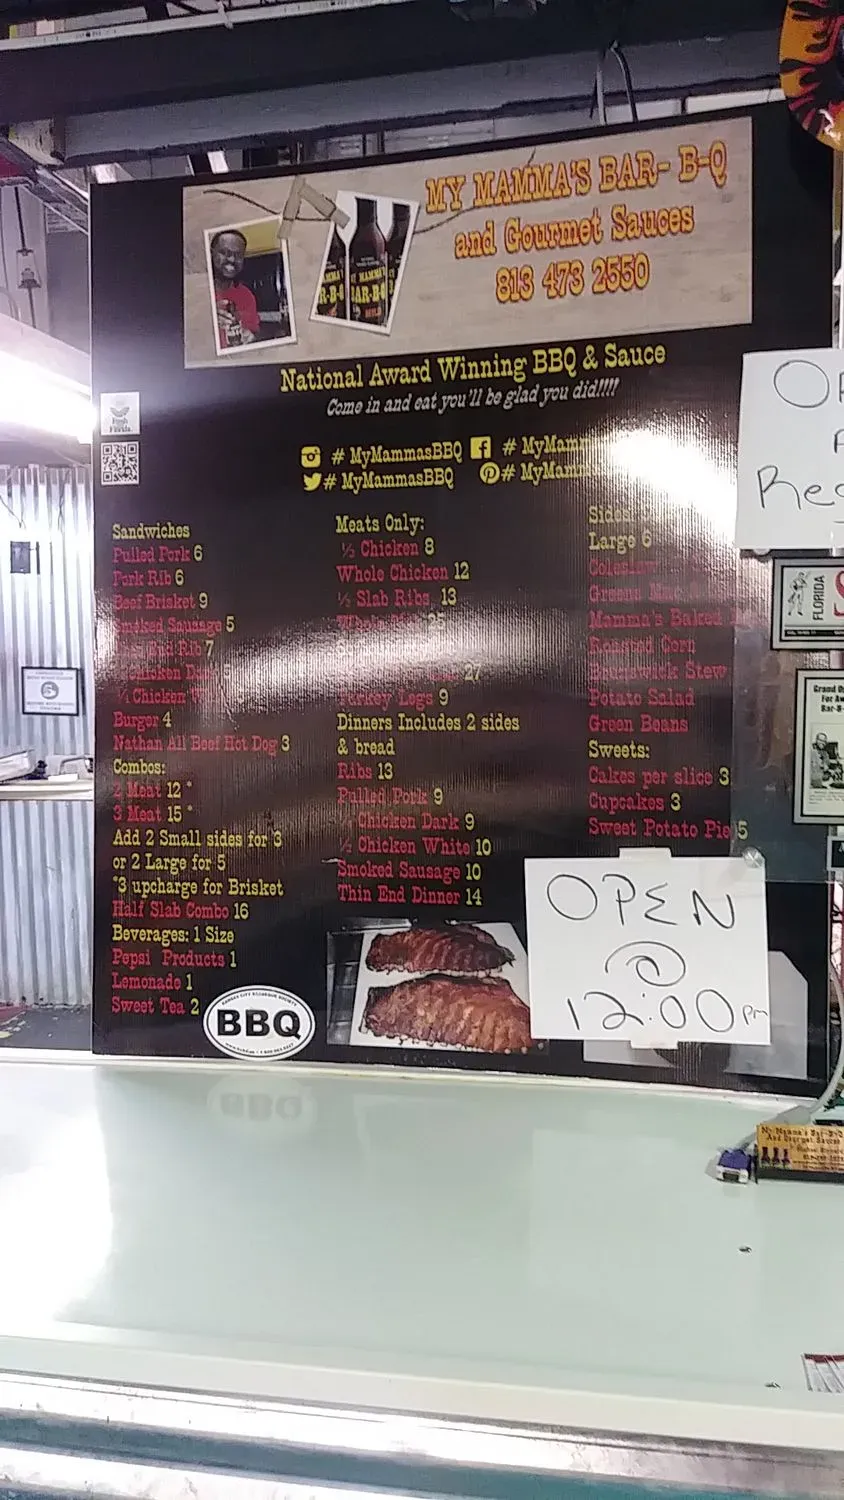 MY MAMMA'S BAR- B-Q
and Gourmet Sauces
813 473 2550
National Award Winning BBQ & Sauce
Come in and eat you'll be glad you did!!!!
# MyMammasBBQ
# MyMammasBBQ
Sandwiches
Pulled Pork 6
Pork Rib 6
Beef Brisket 9
Smoked Sausage 5
End Rib 7
Chicken
¼ Chicken
Burger 4
Nathan All Beef Hot Dog 3
Combos:
2 Meat 12 *
3 Meat 15 *
Add 2 Small sides for 3
or 2 Large for 5
*3 upcharge for Brisket
Half Slab Combo 16
Beverages: 1 Size
Pepsi Products 1
Lemonade 1
Sweet Tea 2
Meats Only:
½ Chicken 8
Whole Chicken 12
½ Slab Ribs 13
Whole
27
Turkey Legs 9
Dinners Includes 2 sides
& bread
Ribs 13
Pulled Pork 9
Chicken Dark 9
Chicken White 10
Smoked Sausage 10
Thin End Dinner 14
Sides
Large 6
Coleslaw
Greens Mac
Mamma's Baked
Roasted Corn
Brunswick Stew
Potato Salad
Green Beans
Sweets:
Cakes per slice 3
Cupcakes 3
Sweet Potato Pie 5
OPEN
@
12:00 pm
BBQ
FLORIDA